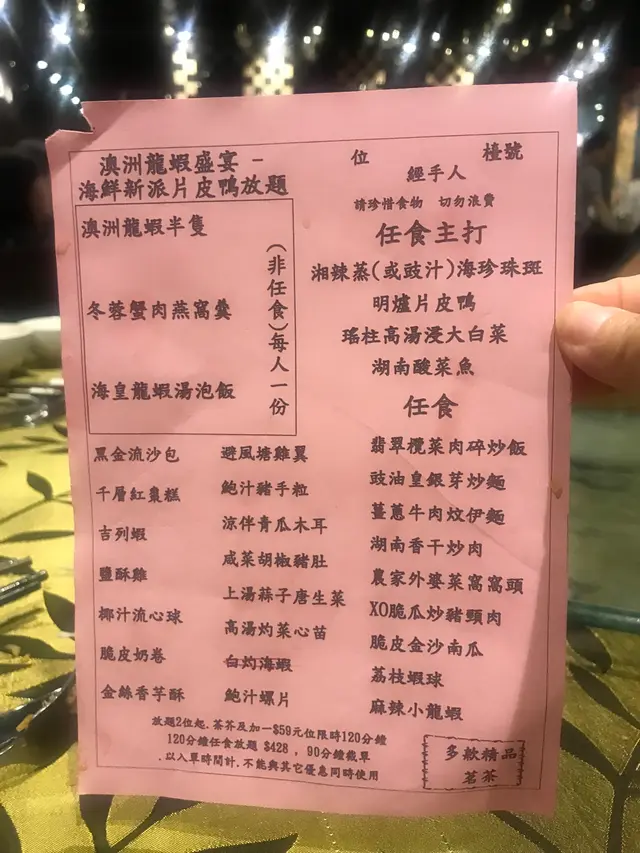 澳洲龍蝦盛宴 -
海鮮新派片皮鴨放題
位 檯號
經手人
請珍惜食物 切勿浪費
澳洲龍蝦半隻
冬蓉蟹肉燕窩羹
海皇龍蝦湯泡飯
(非任食)每人一份
任食主打
湘辣蒸(或豉汁)海珍珠斑
明爐片皮鴨
瑤柱高湯浸大白菜
湖南酸菜魚
任食
黑金流沙包
千層紅棗糕
吉列蝦
鹽酥雞
椰汁流心球
脆皮奶卷
金絲香芋酥
避風塘雞翼
鮑汁豬手粒
涼伴青瓜木耳
咸菜胡椒豬肚
上湯蒜子唐生菜
高湯灼菜心苗
白灼海蝦
鮑汁螺片
翡翠欖菜肉碎炒飯
豉油皇銀芽炒麵
薑蔥牛肉炆伊麵
湖南香干炒肉
農家外婆菜窩窩頭
XO脆瓜炒豬頸肉
脆皮金沙南瓜
荔枝蝦球
麻辣小龍蝦
放題2位起.茶芥及加一$59元位限時120分鐘
120分鐘任食放題 $428 , 90分鐘截單
.以入單時間計.不能與其它優惠同時使用
多款精品
茗茶